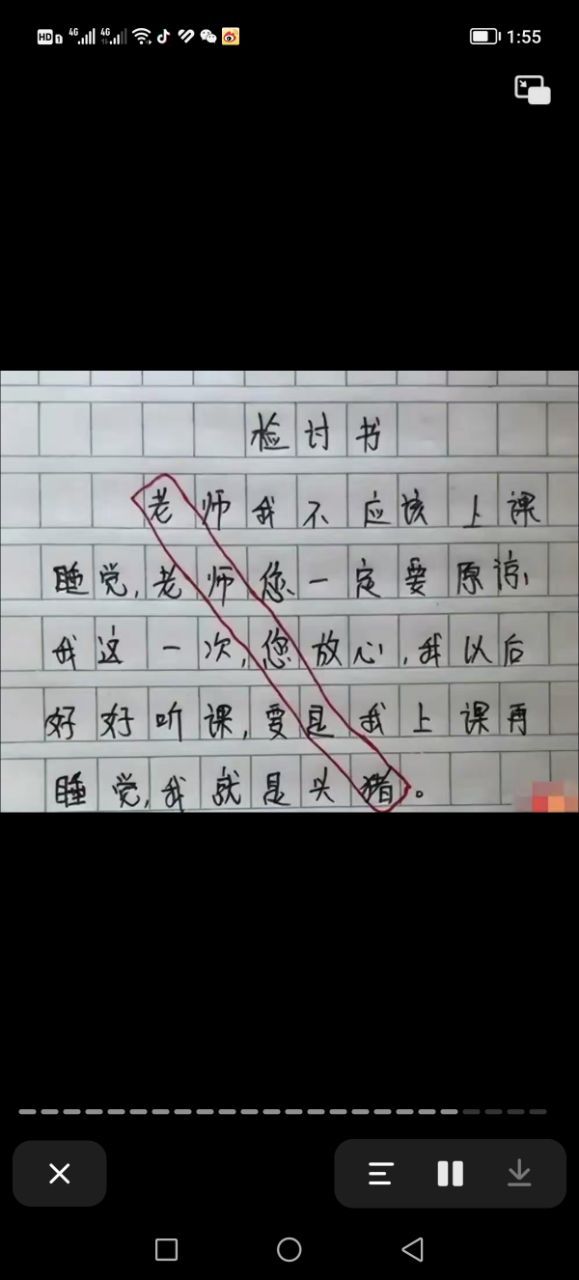 HD 1 4G 4G 1:55
检讨书
老师我不应该上课
睡觉,老师您一定要原谅
我这一次,您放心,我以后
好好听课,要是我上课再
睡觉,我就是头猪。